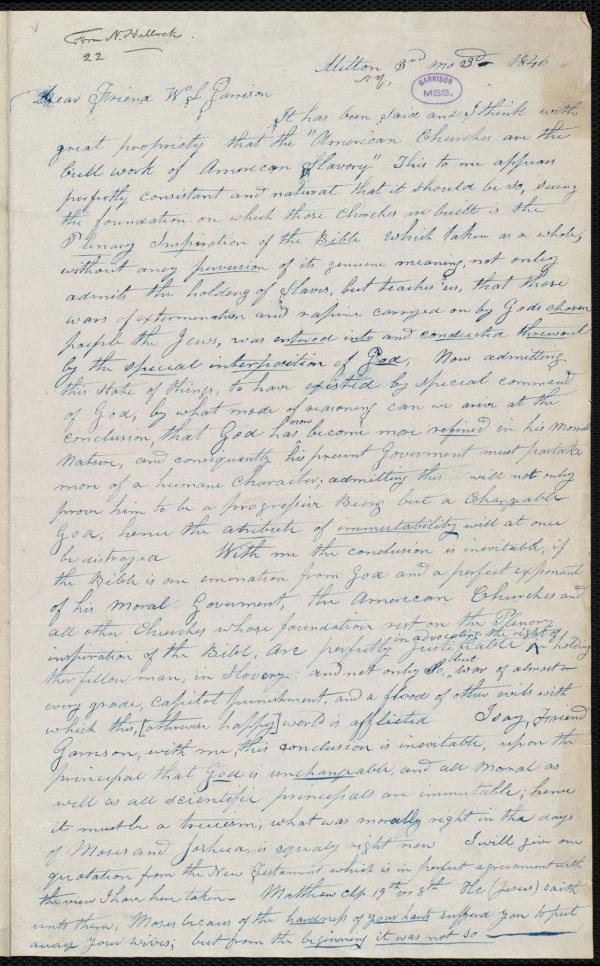 From N. Hallock.
22
Milton 3rd mo 3d 1846
N.Y.
GARRISON
MSS.
Dear Friend Wm L Garrison
It has been said and I think with
great propriety that the "American Churches are the
bull work of American Slavery" This to me appears
perfectly consistant and natural that it should be so, seeing
the foundation on which those Churches are built is the
Plenary Inspiration of the Bible which taken as a whole,
without any perversion of its genuine meaning, not only
admits the holding of Slaves, but teaches us, that those
wars of extermination and rapine carryed on by Gods chosen
people the Jews, was entered into and conducted throught
by the special interposition of God, Now admitting
this state of things, to have existed by special command
of God, by what mode of reasoning can we arive at the
conclusion, that God has now become more refined in his Moral
Nature, and consequently his present Goverment must partake
more of a humane character, admitting this will not only
prove him to be a progressive Being but a Changeable
God, hence the atribute of immutability will at once
be distroyed With me the conclusion is inevitable, if
the Bible is an emenation from God and a perfect exponant
of his Moral Goverment, the American Churches and
all other Churches whose foundation rest on the Plenory
inspiration of the Bibel, are perfectly justifiable in advocating the right of holding
ther fellow man, in Slovery: and not only so, but war of almost
every grade, Capitol punishment, and a flood of other evils with
which this, [otherwise happy] world is afflicted I say, Friend
Garrison, with me, this conclusion is inevitable, upon the
principal that God is unchangeable, and all Moral as
well as all scientific principals are immutable; hence
it must be a truism, what was morally right in the days
of Moses and Joshua, is equaly right now I will give one
quotation from the New Testament which is in perfect agreement with
the view I have hear taken - Matthew chp 19th vr 8th He (Jesus) saith
unto them, Moses because of the hardness of your harts sufferd you to put
away your wives; but from the beginning it was not so